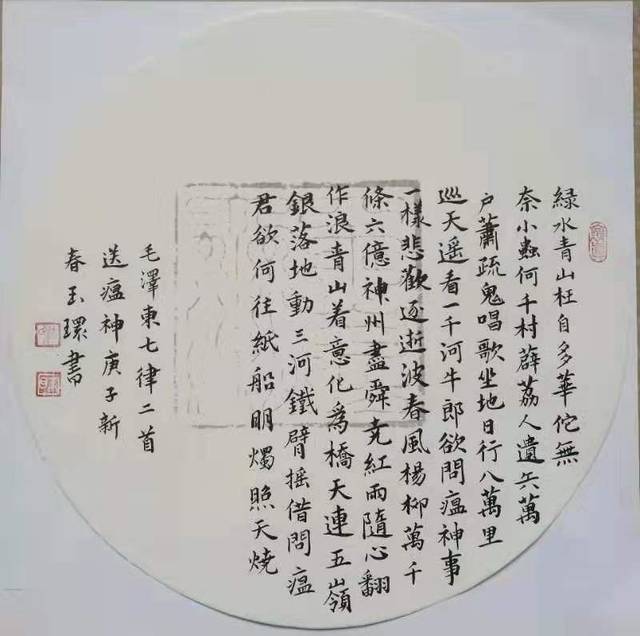 緑水青山枉自多華佗無
奈小蟲何千村薜荔人遺矢萬
户蕭疏鬼唱歌坐地日行八萬里
巡天遥看一千河牛郎欲問瘟神事
一樣悲歡逐逝波春風楊柳萬千
條六億神州盡舜尭紅雨隨心翻
作浪青山着意化爲橋天連五嶺
銀落地動三河鐵臂摇借問瘟
君欲何往紙船明燭照天燒
毛澤東七律二首
送瘟神庚子新
春玉環書